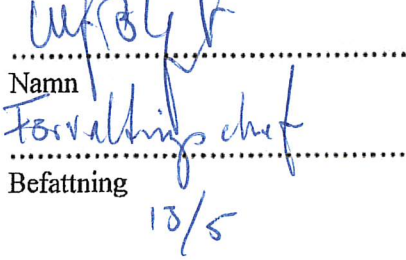 Namn
Förvaltningschef
Befattning
13/5